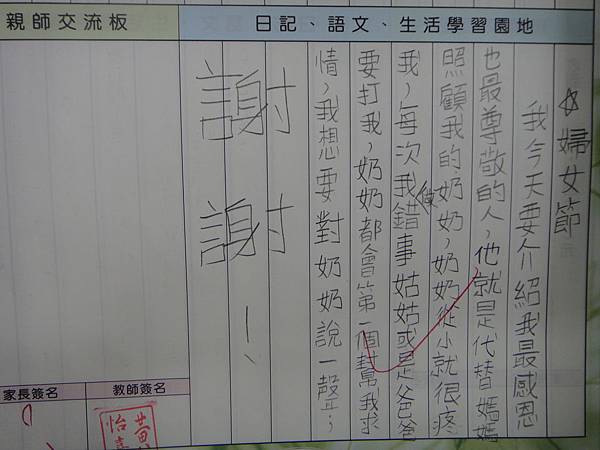 親師交流板
日記、語文、生活學習園地
☆婦女節
我今天要介紹我最感恩
也最尊敬的人，他就是代替媽媽
照顧我的奶奶，奶奶從小就很疼
我，每次我做錯事姑姑或是爸爸
要打我，奶奶都會第一個幫我求
情，我想要對奶奶說一聲；
謝謝！
家長簽名
教師簽名
黃
怡